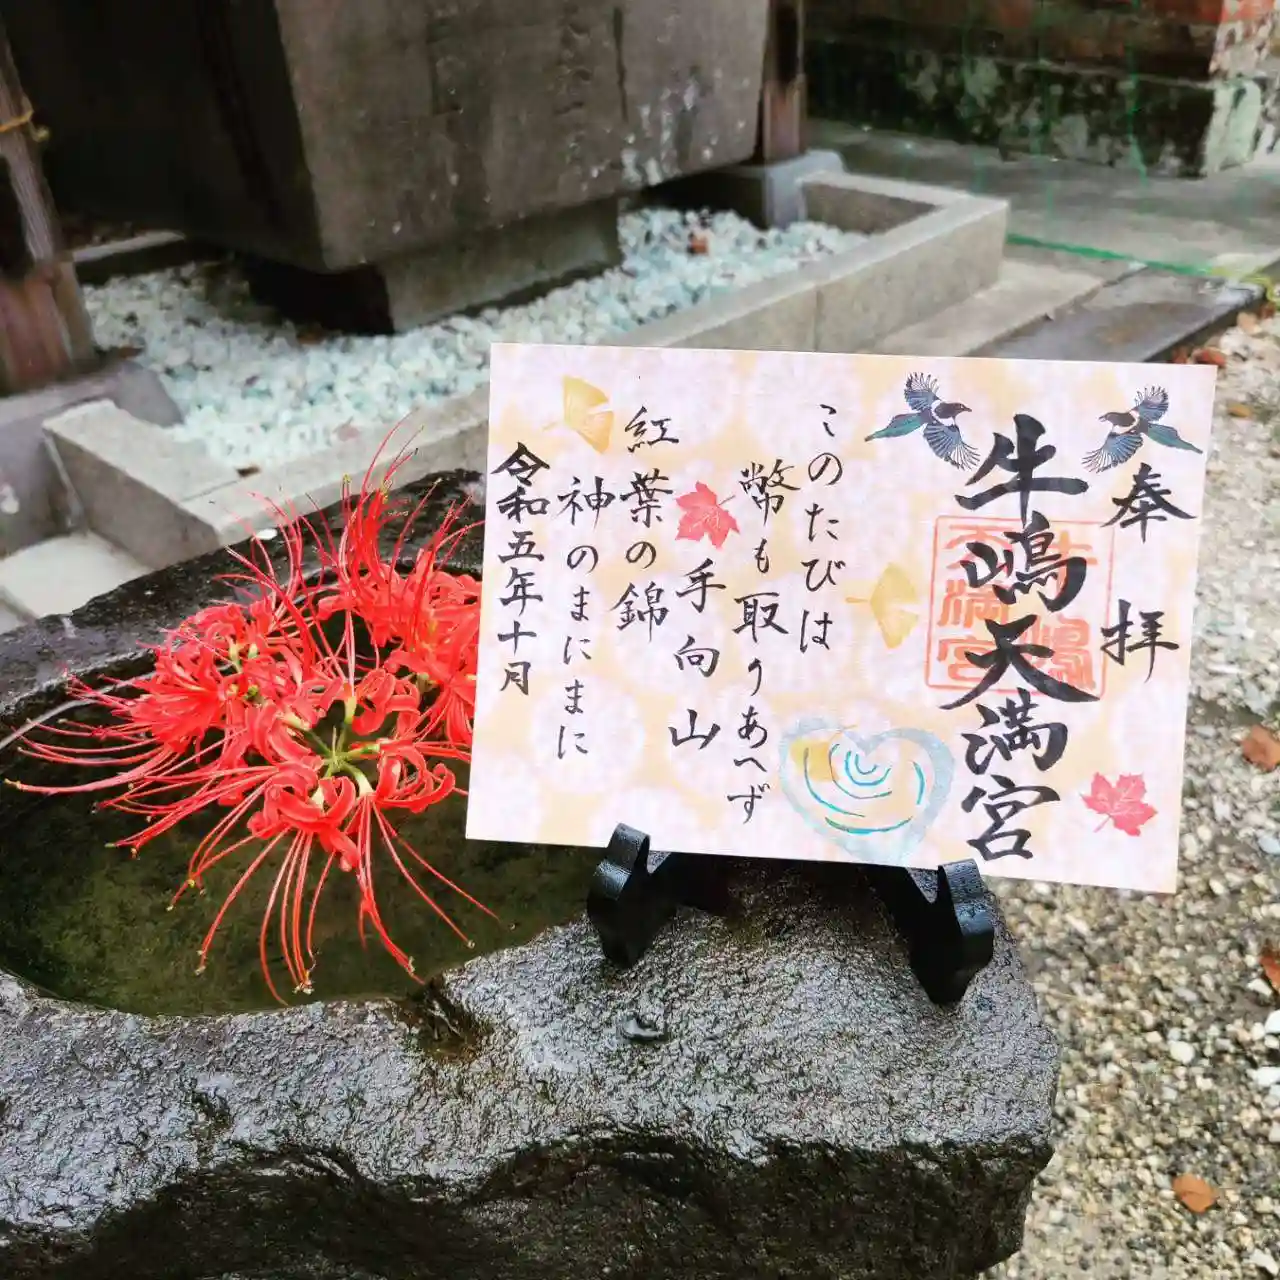 奉拝
牛嶋天満宮
このたびは
幣も取りあへず
手向山
紅葉の錦
神のまにまに
令和五年十月
牛嶋
天満宮